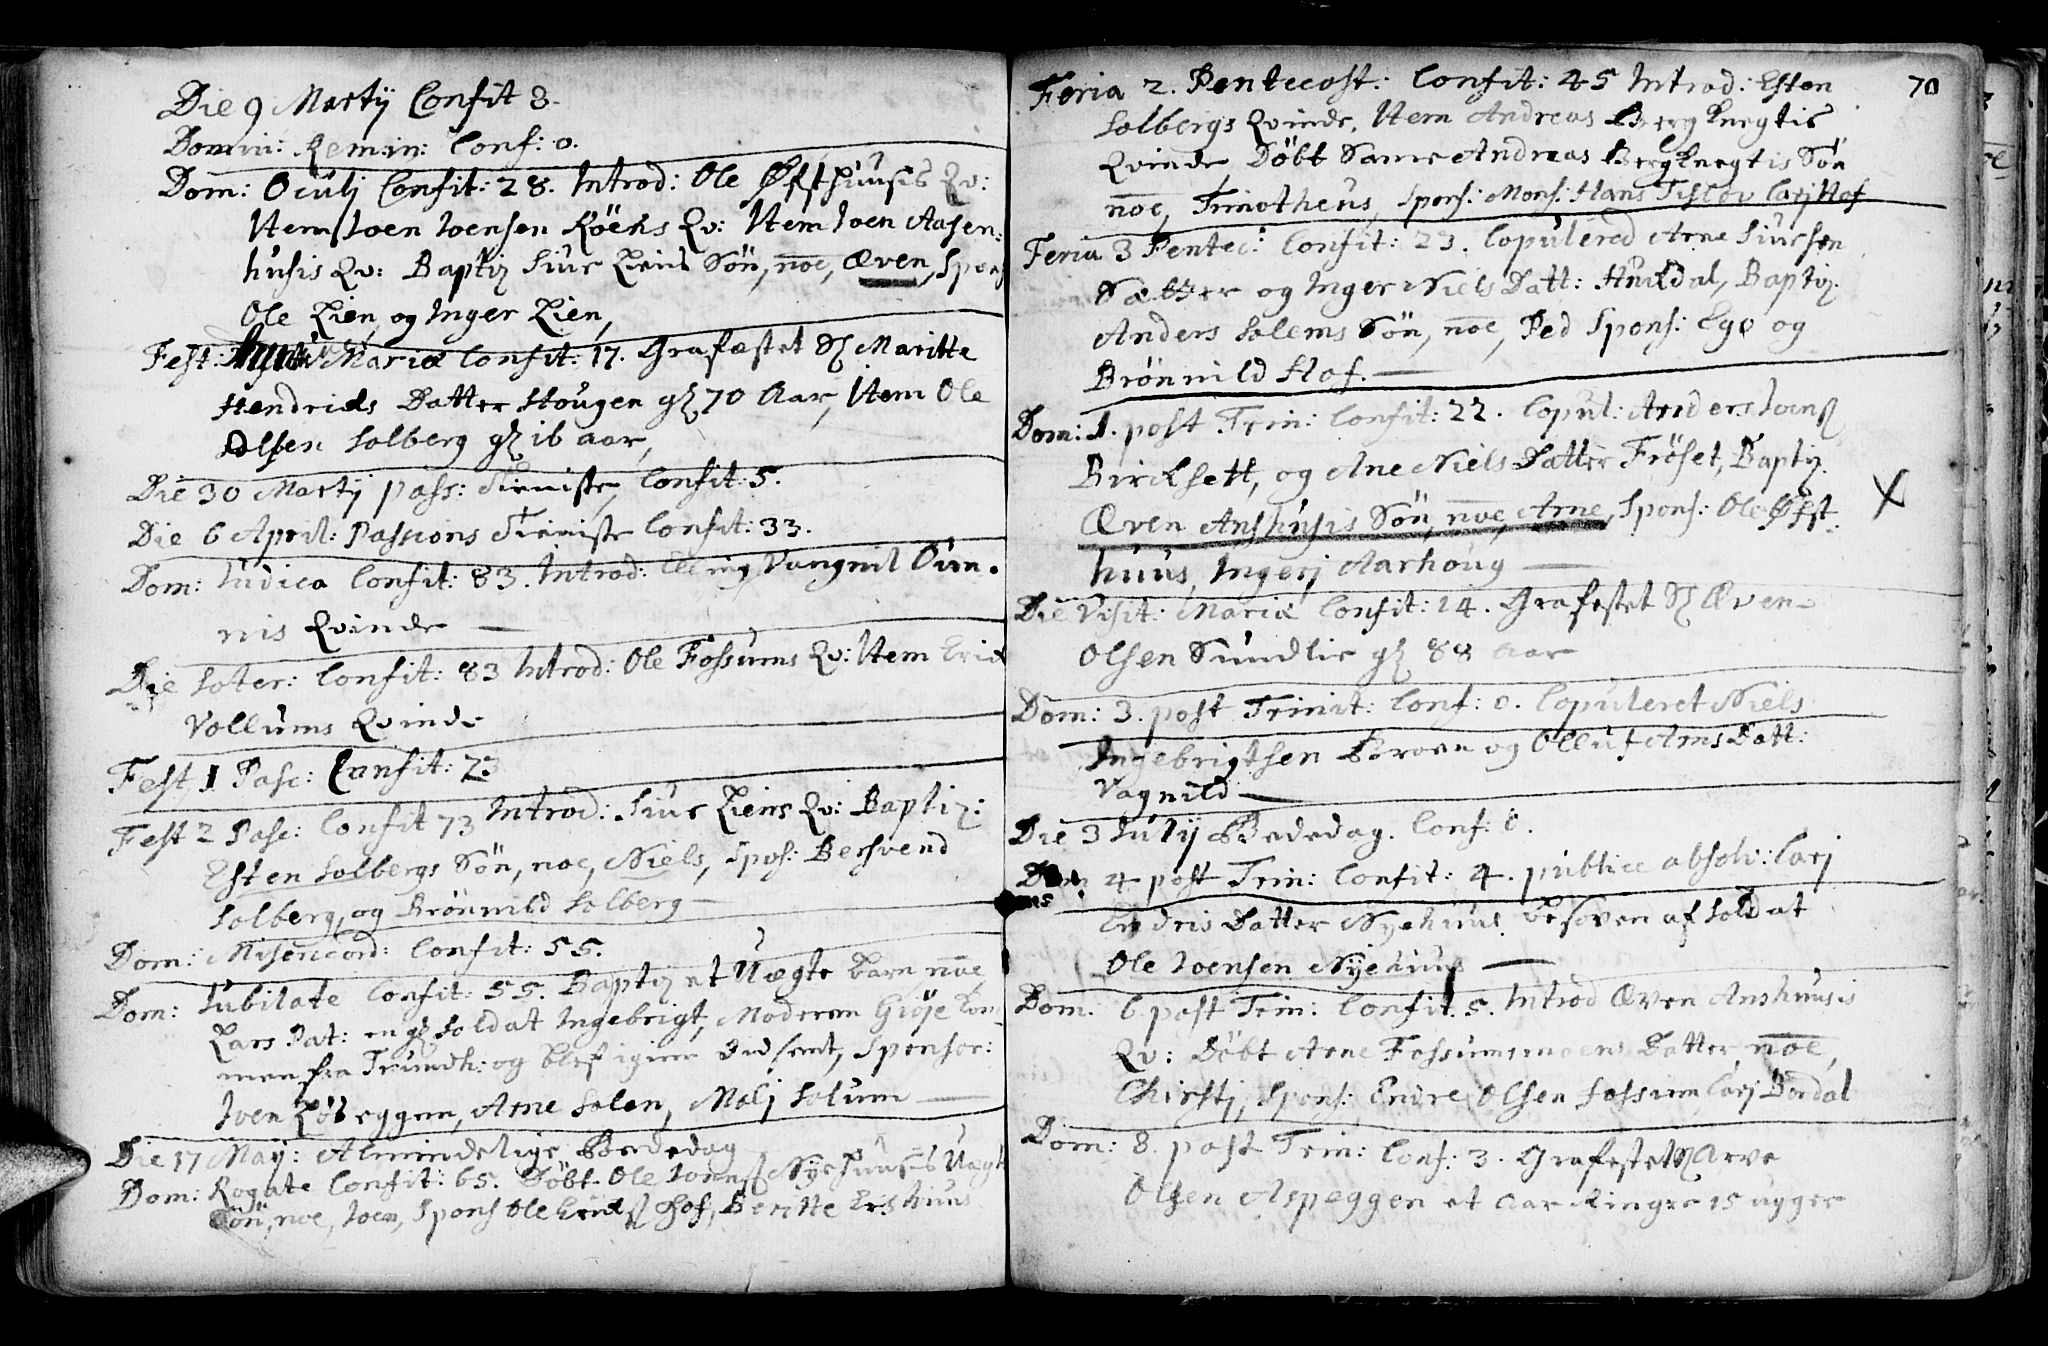 Die 9 Martij Confit 8.
Domin: Remin: Conf: 0.
Dom: Oculj Confit: 28. Introd: Ole Øfsthuusis Qv:
Item Joen Joensen Röens Qv: Item Joen Aasen-
husis Qv: Baptiz Siur Liens Sön, noe, Æven, Spons
Ole Lien, og Inger Lien,
Fest: Mariæ Confit: 17. Grafæstet Sl Maritte
Hendrichs Datter Hougen gl 70 Aar, Item Ole
Olsen Solberg gl 16 aar,
Die 30 Martij pass: Tieniste, Confit: 5.
Die 6 April: Passions Tieniste Confit: 33.
Dom: Judica Confit: 83. Introd: Vangnil
nis Qvinde
Die Soter: Confit: 83 Introd: Ole Fossums Qv: Item Erich
Vollums Qvinde
Fest 1 Pasc: Confit: 23
Fest 2 Pasc: Confit 73 Introd: Siur Liens Qv: Baptiz:
Esten Solbergs Sön, noe, Niels, Spos: Bersvend
Solberg, og Brönnild Solberg
Dom: Misericord: Confit: 55.
Dom: Jubilate Confit: 55. Baptiz et Uægte barn, noe
Lars Pat: en gl Soldat Ingebrigt, Moderen Giöje kom-
men fra Trundh: og blef igien did sent, Sponsor:
Joen Löbeggen, Arne Solen, Malj Solum
Die 17 Maij: Almindelige Bededag
Dom: Rogate Confit: 65. Döbt Ole Jonns Nyehuusis Uægt
Sön, noe, Joen, Spons Ole Hof, Beritte huus
70
Feria 2. Pentecost: Confit: 45 Introd: Esten
Solbergs Qvinde, Item Andreas Bergknegtis
Qvinde, Döbt Same Andreas Bergknegtis Sön
noe, Timotheus, Spons: Mons: Hans Tislov Carj Hof
Feria 3 Pentec: Confit: 23. Copulered Arne Siursen
Sætter og Inger Niels Datt: Hvildal, Baptiz.
Anders Solems Sön, noe, Ped Spons: Ego og
Brönnild Hof.
Dom: 1. post Trin: Confit: 22. Copul: Anders Joens
Birchsett, og Ane Niels Datter Fröset, Baptiz.
Æven Anshusis Sön, noe, Arne, Spons: Ole Øfst- X
huus, Ingerj Aarhoug
Die Visit: Mariæ Confit: 14. Grafestet Sl Æven
Olsen Sundlie gl 88 Aar
Dom: 3. post Trinit: Conf: 0. Copuleret Niels
Ingebrigtsen Broen og Olluf Arns Datt:
Vagnild
Die 3 Julij Bededag. Conf: 0.
Dom 4 post Trin: Confit: 4. publice absolv: Carj
Endris Datter Nyehuus besoven af Soldat
Ole Joensen Nyehuus
Dom. 6 post Trin: Confit. 5. Introd Æven Anshuusis
Qv: Döbt Arne Fossummoens Datter, noe,
Chirstj, Spons: Endre Olsen Fossum Carj Dördal
Dom: 8. post Trin: Conf: 3. Grafestet Sl Arve
Olsen Aspeggen et Aar Ringer 15 ugger